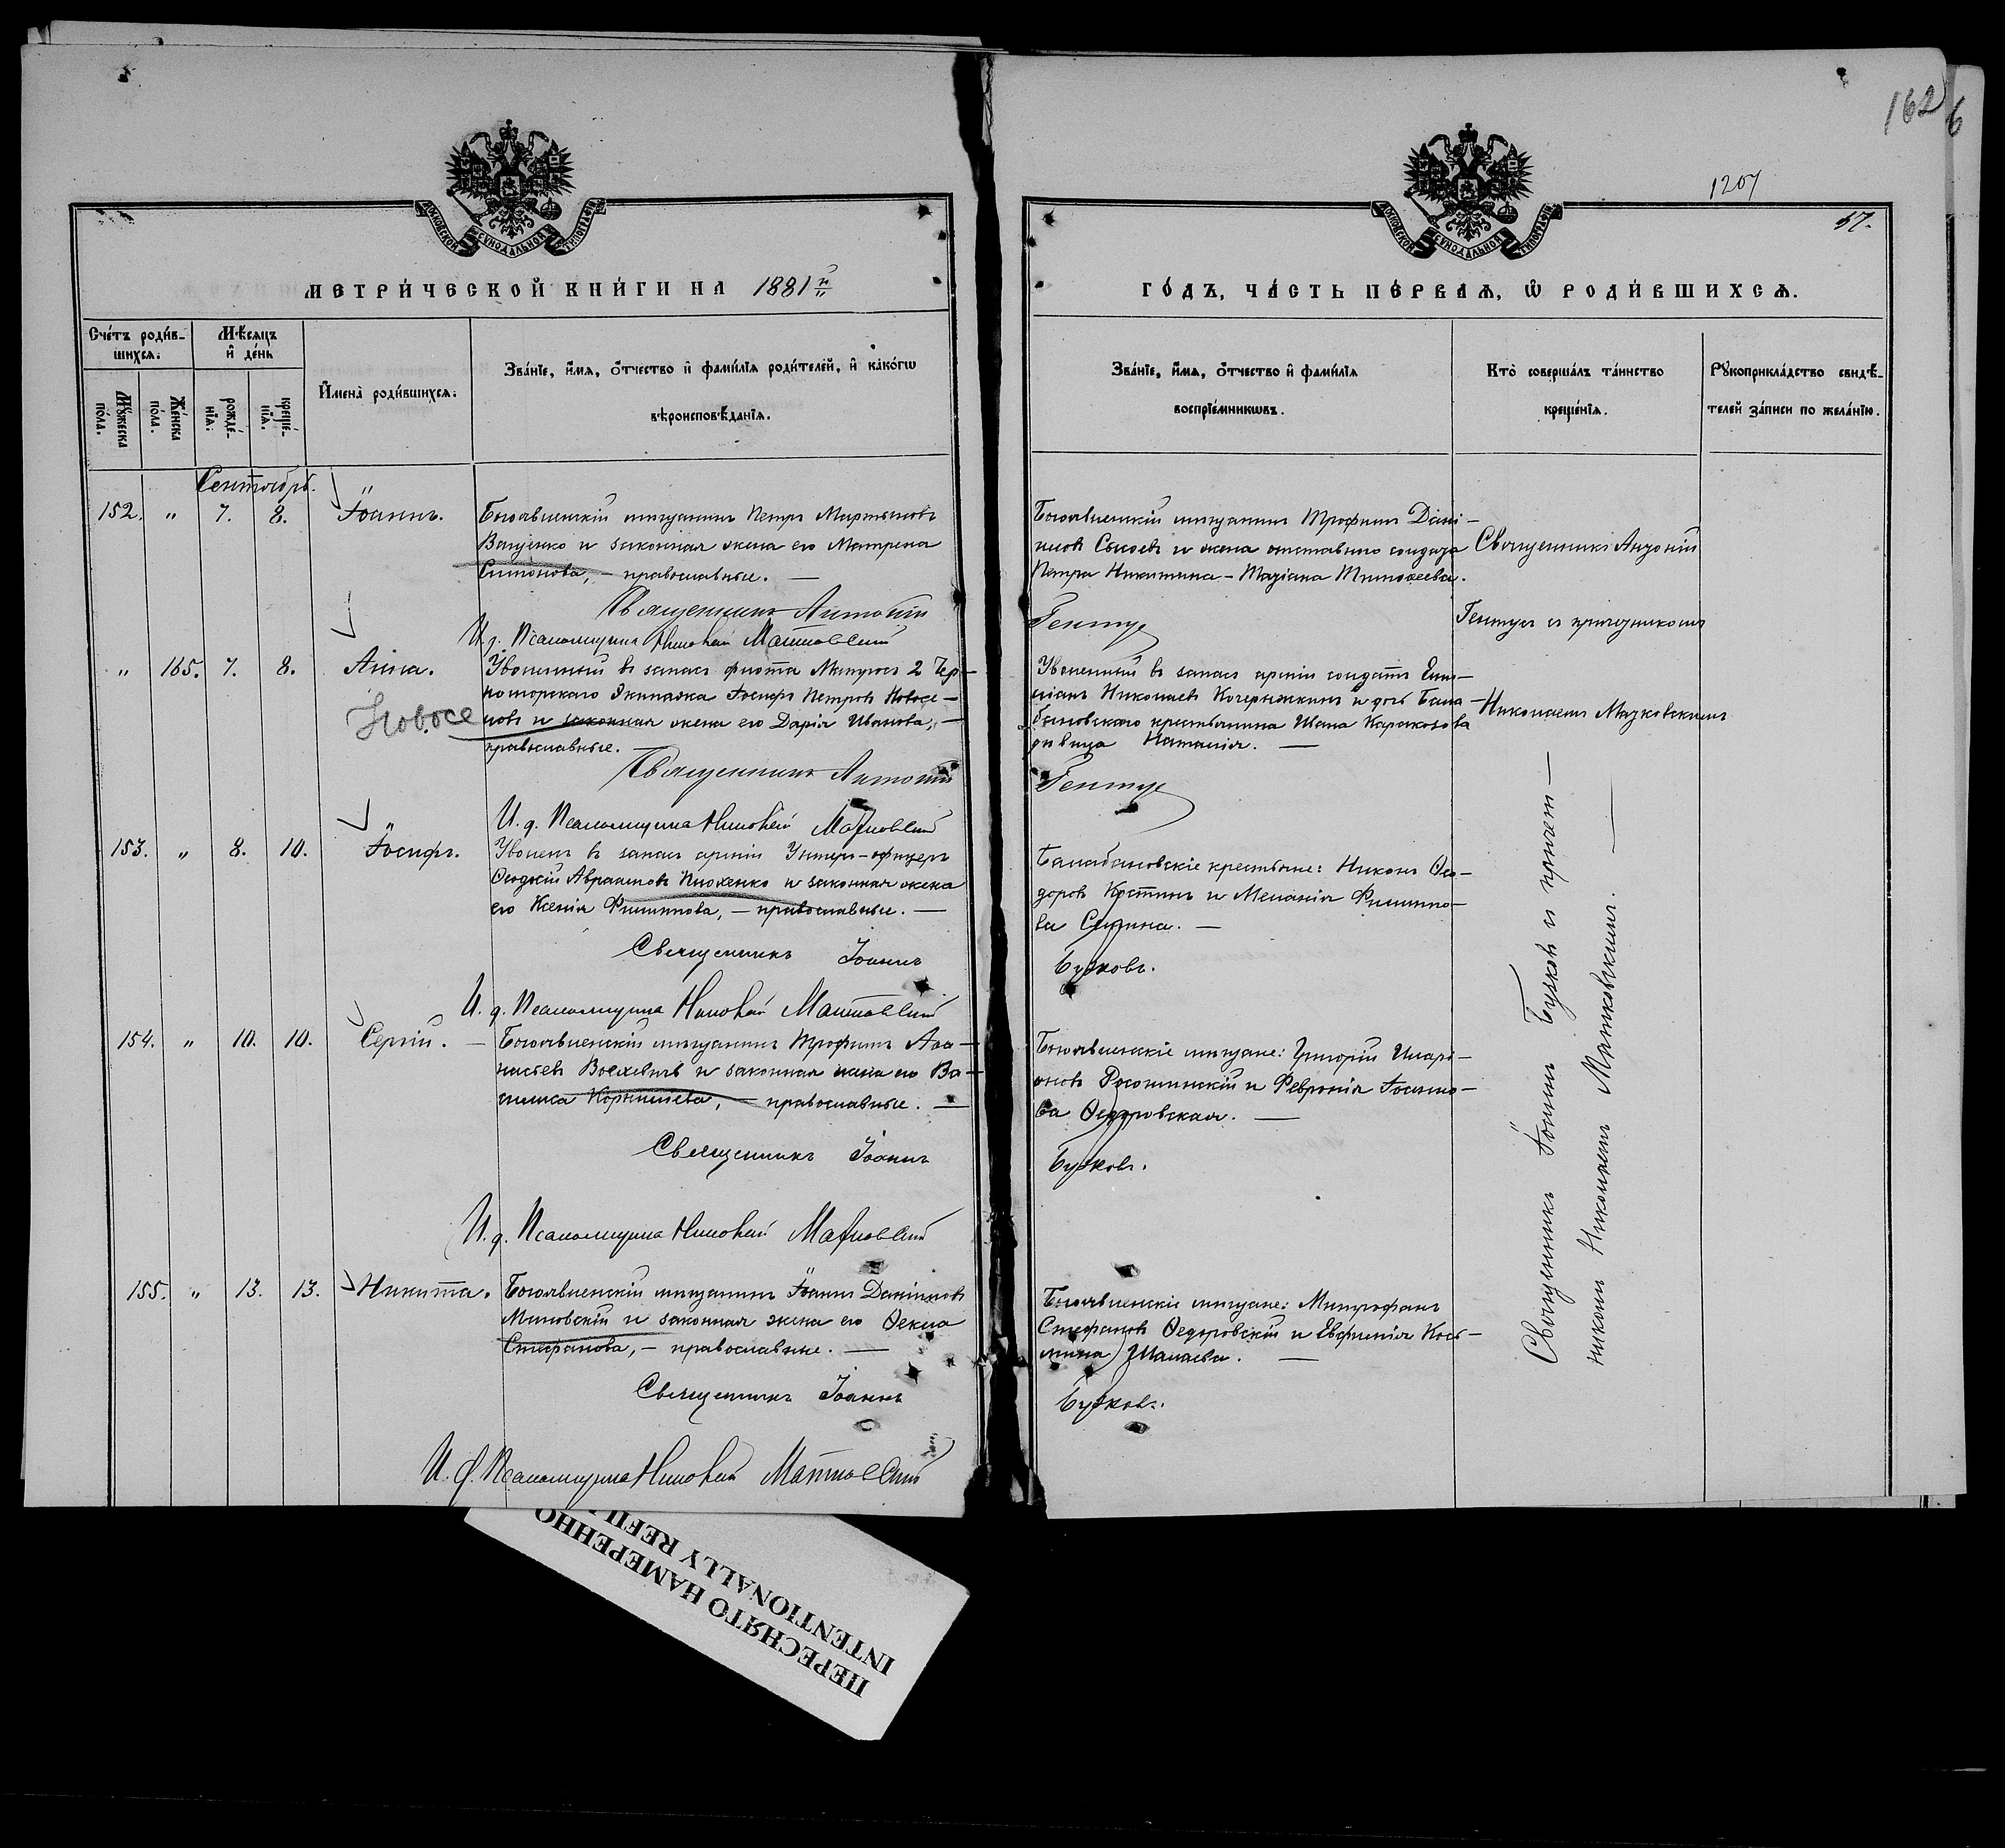 162
6
1207
57.
МОСКОВСКОЙ СѴНОДАЛЬНОЙ ТИПОГРАФІИ
МОСКОВСКОЙ СѴНОДАЛЬНОЙ ТИПОГРАФІИ
МЕТРИ́ЧЕСКОЙ КНИ́ГИ НА 1881й
ГО́ДЪ, ЧА́СТЬ ПЕ́РВАЯ, Ѡ҆ РОДИ́ВШИХСЯ.
Сче́тъ роди́в-
шихся:
Мꙋ́жеска по́ла.
Же́нска по́ла.
Мѣ́сяцъ
и҆ де́нь
рожде́-
нїя:
креще́-
нїя.
И҆мена̀ роди́вшихся:
Зва́нїе, и҆́мя, ѻ҆́тчество и҆ фами́лїя роди́телей, и҆ како́гѡ
вѣроисповѣ́данїя.
Зва́нїе, и҆́мя, ѻ҆́тчество и҆ фами́лїя
воспрїе́мникѡвъ.
Кто̀ соверша́лъ та́инство
креще́нїя.
Рꙋкоприкла́дство свидѣ́-
телей за́писи по жела́нїю.
Сентябрь.
152. " 7. 8. Іоаннъ.
Богоявленскій мѣщанинъ Петръ Мартыновъ
Ващенко и законная жена его Матрона
Симонова, — православные. —
Священникъ Антоній
И. д. Псаломщика Николай Матковскій
Богоявленскій мѣщанинъ Трофимъ Дані-
иловъ Сысоевъ и жена отставного солдата
Петра Никитина - Татіана Тимофеева.
Гентуг
Священникъ Антоній
Гентугъ съ причетникомъ
Николаемъ Матковскимъ
" 165. 7. 8. Анна.
Новосе
Уволенный въ запасъ флота Матросъ 2 Чер-
номорскаго Экипажа Іосифъ Петровъ Новосе-
ловъ и законная жена его Дарія Иванова, —
православные. —
Священникъ Антоній
И. д. Псаломщика Николай Матковскій
Уволенный въ запасъ арміи солдатъ Еми-
ліанъ Николаевъ Кочерыжкинъ и дочь Бала-
бановскаго крестьянина Ивана Каракозова
дѣвица Наталія. —
Гентуг
153. " 8. 10. Іосифъ.
Уволенъ въ запасъ арміи Унтеръ-офицеръ
Ѳеодосій Авраамовъ Плохенко и законная жена
его Ксенія Филиппова, — православные. —
Священникъ Іоаннъ
И. д. Псаломщика Николай Матковскій
Балабановскіе крестьяне: Никонъ Ѳео-
доровъ Костинъ и Меланія Филиппо-
ва
Бутковъ.
154. " 10. 10. Сергій. —
Богоявленскій мѣщанинъ Трофимъ Аѳа-
насьевъ и законная жена его Ва-
силиса Корнилиева, — православные. —
Священникъ Іоаннъ
И. д. Псаломщика Николай Матковскій
Богоявленскіе мѣщане: Григорій Иларі-
оновъ и Февронія Іоанно-
ва Ѳедоровская. —
Бутковъ.
155. " 13. 13. Никита.
Богоявленскій мѣщанинъ Іоаннъ Даніиловъ
Миловскій и законная жена его Ѳекла
Стефанова, — православные. —
Священникъ Іоаннъ
И. д. Псаломщика Николай Матковскій
Богоявленскіе мѣщане: Митрофанъ
Стефановъ Ѳедоровскій и Евфимія Кось-
мина Шалаева. —
Бутковъ.
Священникъ Іоаннъ Бутковъ съ причет-
никомъ Николаемъ Матковскимъ. —
ПЕРЕСНЯТО НАМЕРЕННО
INTENTIONALLY REFIL